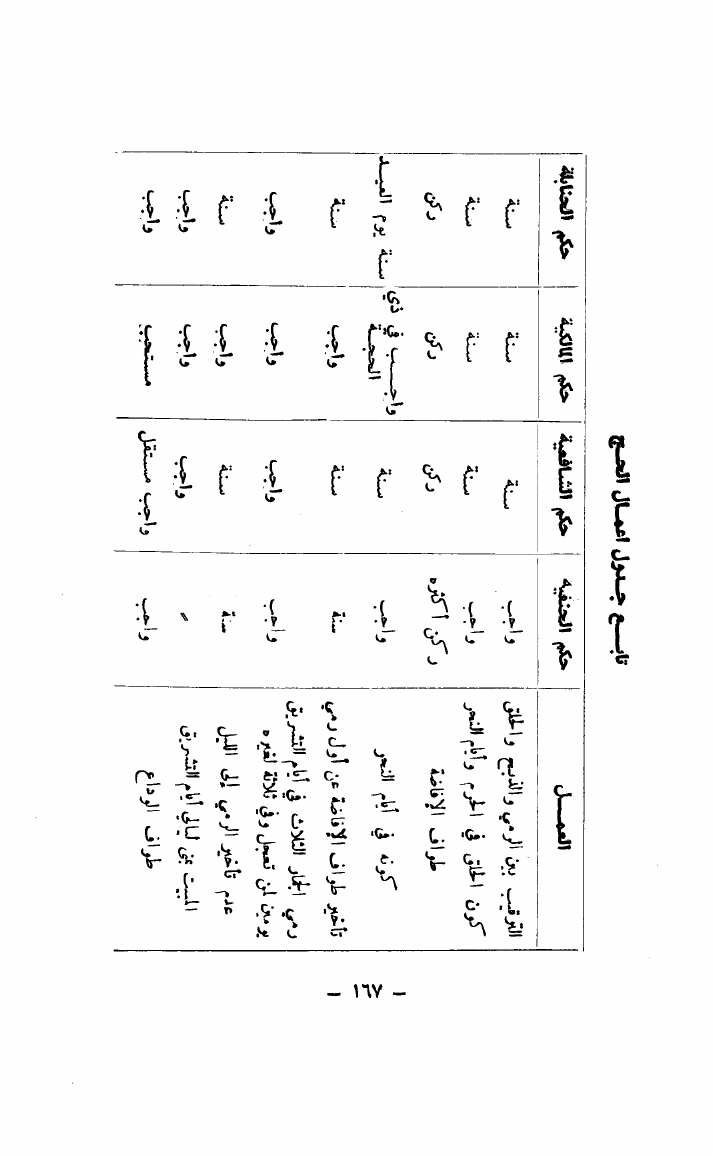 تابع جدول أعمال الحج
العمل حكم الحنفيه حكم الشافعية حكم المالكية حكم الحنابلة
الترتيب بين الرمي والذبح والحلق واجب سنة سنة سنة
كون الحلق في الحرم وأيام النحر واجب سنة سنة سنة
طواف الإفاضة ركن أكثره ركن ركن ركن
كونه في أيام النحر واجب سنة واجب في ذي الحجة سنة يوم العيد
تأخير طواف الإفاضة عن أول رمي سنة سنة واجب سنة
رمي الجمار الثلاث في أيام التشريق
يومين لمن تعجل وفي ثلاثة لغيره واجب واجب واجب واجب
عدم تأخير الرمي إلى الليل سنة سنة واجب سنة
المبيت بمنى ليالي أيام التشريق = واجب واجب واجب
طواف الوداع واجب واجب مستقل مستحب واجب
– ١٦٧ –